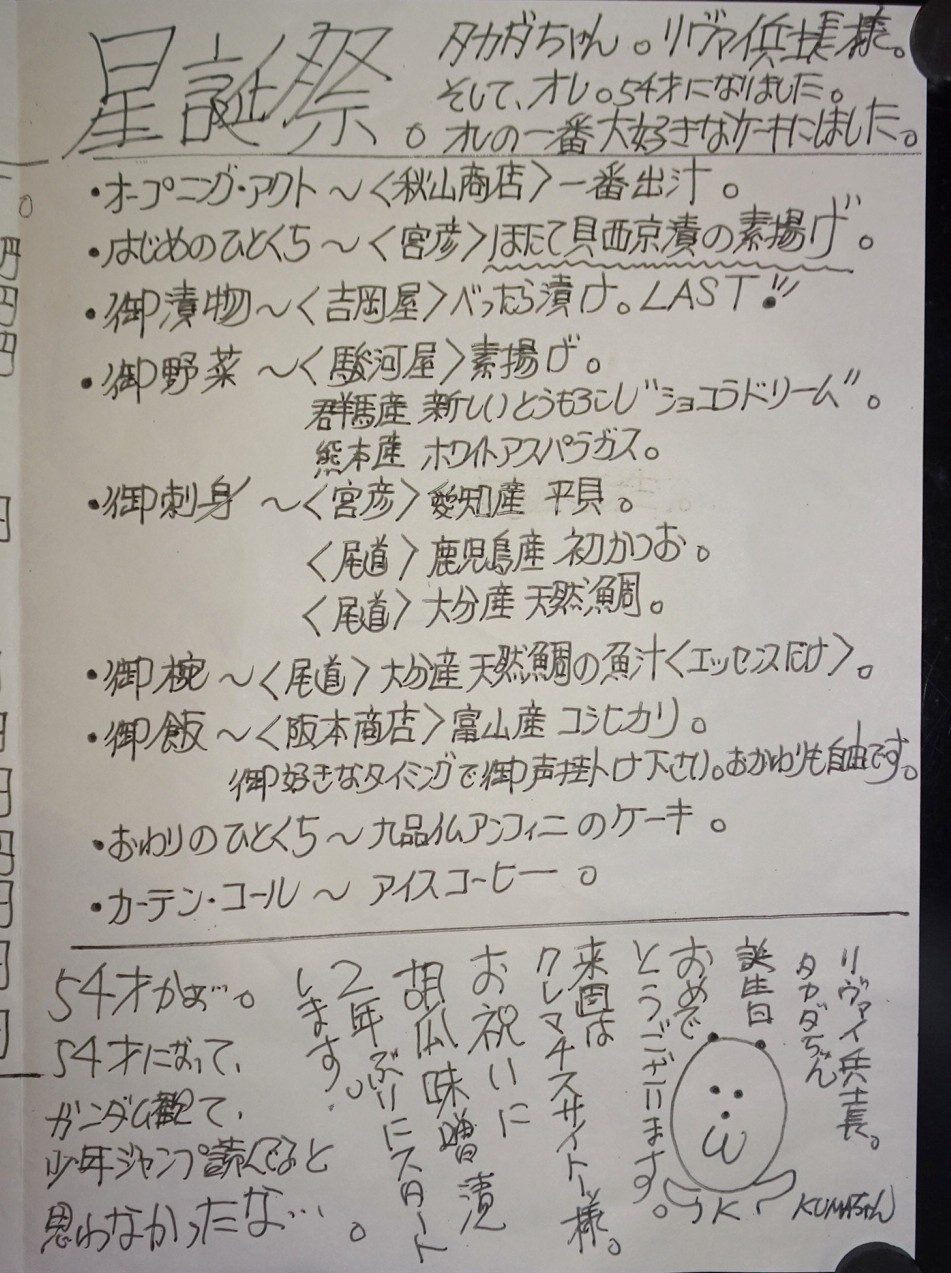 星誕祭。
タカダちゃん。リヴァイ兵士長様。
そして、オレ。54才になりました。
オレの一番大好きなケーキにしました。
・オープニング・アクト～〈秋山商店〉一番出汁。
・はじめのひとくち～〈宮彦〉ほたて貝西京漬の素揚げ。
・御漬物～〈吉岡屋〉べったら漬け。LAST!!!
・御野菜～〈駿河屋〉素揚げ。
群馬産 新しいとうもろこし"ショコラドリーム"。
熊本産 ホワイトアスパラガス。
・御刺身～〈宮彦〉愛知産 平貝。
〈尾道〉鹿児島産 初かつお。
〈尾道〉大分産 天然鯛。
・御椀～〈尾道〉大分産 天然鯛の魚汁〈エッセンスだけ〉。
・御飯～〈阪本商店〉富山産 コシヒカリ。
御好きなタイミングで御声掛け下さい。おかわりも自由です。
・おわりのひとくち～九品仏アンフィニのケーキ。
・カーテン・コール～アイスコーヒー。
リヴァイ兵士長。
タカダちゃん
誕生日
おめで
とうございます。
来週は
クレマチスサイトー様。
お祝いに
胡瓜味噌漬
2年ぶりにスタート
します。
KUMAちゃん
54才かぁ…。
54才になって、
ガンダム観て、
少年ジャンプ読んでると
思わなかったな…。